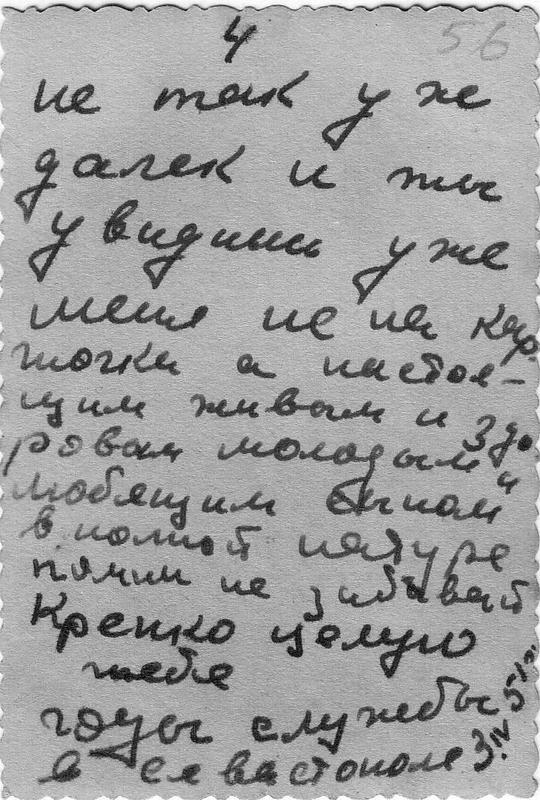 4 56
не так уже
далек и ты
увидиш уже
меня не на кар
точки а настоя-
щим живым и здо
ровым молодым и
любящим сыном
в полной натуре
не забывай
Крепко целую
тебя
годы службы
в севастополе 3.IV 51г.